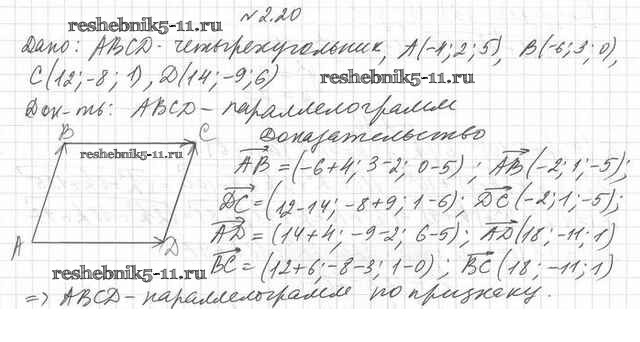 №2.20
reshebnik5-11.ru
Дано: ABCD - четырехугольник, A(-4; 2; 5), B(-6; 3; 0),
C(12; -8; 1), D(14; -9; 6)
reshebnik5-11.ru
Док-ть: ABCD - параллелограмм
B C Доказательство
reshebnik5-11.ru
AB = (-6+4; 3-2; 0-5); AB(-2; 1; -5);
DC = (12-14; -8+9; 1-6); DC(-2; 1; -5);
A D
AD = (14+4; -9-2; 6-5); AD(18; -11; 1)
BC = (12+6; -8-3; 1-0); BC(18; -11; 1)
reshebnik5-11.ru
=> ABCD - параллелограмм по признаку.